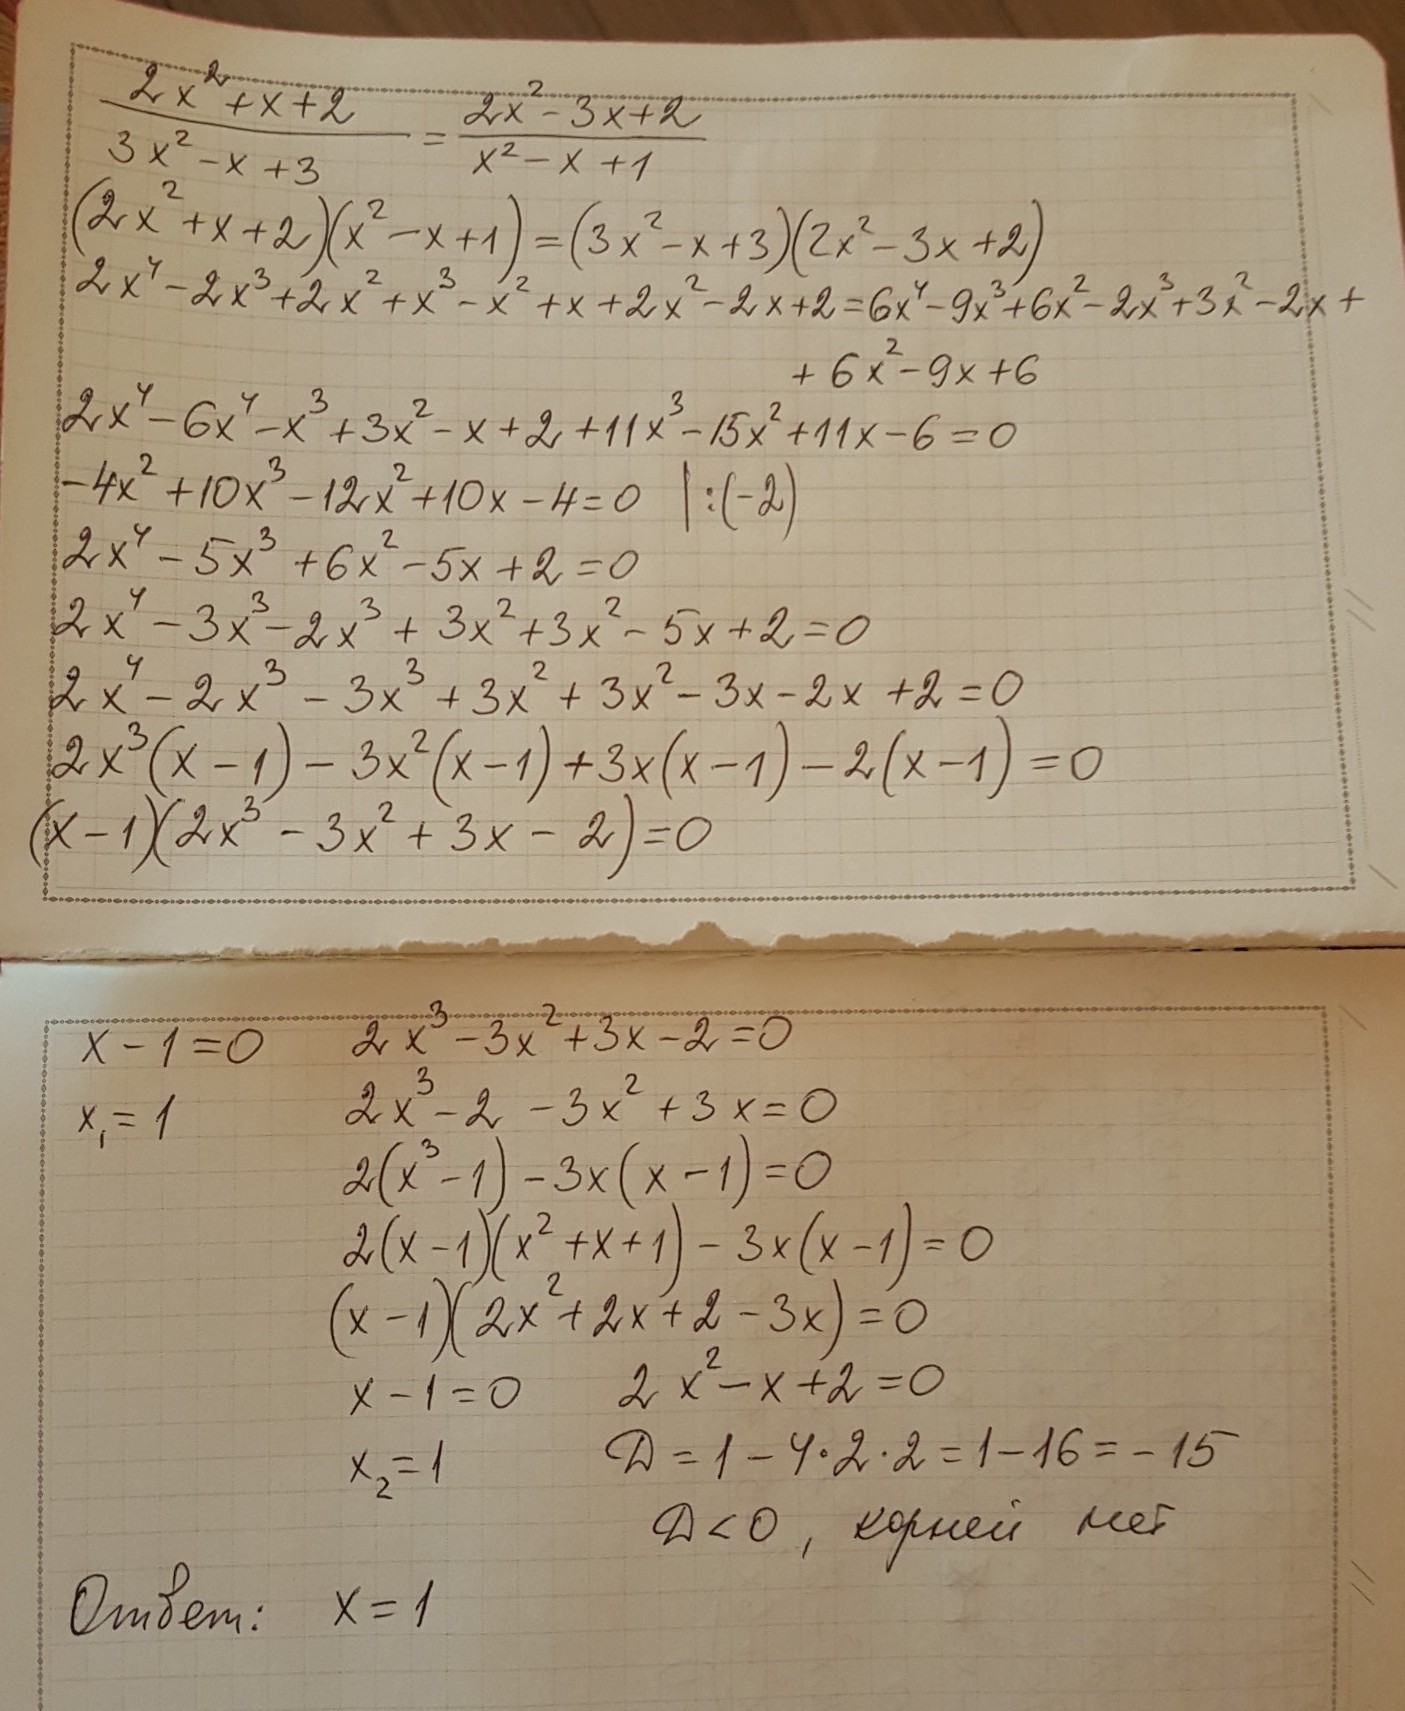 (2x² + x + 2)/(3x² - x + 3) = (2x² - 3x + 2)/(x² - x + 1)
(2x² + x + 2)(x² - x + 1) = (3x² - x + 3)(2x² - 3x + 2)
2x⁴ - 2x³ + 2x² + x³ - x² + x + 2x² - 2x + 2 = 6x⁴ - 9x³ + 6x² - 2x³ + 3x² - 2x +
+ 6x² - 9x + 6
2x⁴ - 6x⁴ - x³ + 3x² - x + 2 + 11x³ - 15x² + 11x - 6 = 0
-4x² + 10x³ - 12x² + 10x - 4 = 0 | :(-2)
2x⁴ - 5x³ + 6x² - 5x + 2 = 0
2x⁴ - 3x³ - 2x³ + 3x² + 3x² - 5x + 2 = 0
2x⁴ - 2x³ - 3x³ + 3x² + 3x² - 3x - 2x + 2 = 0
2x³(x - 1) - 3x²(x - 1) + 3x(x - 1) - 2(x - 1) = 0
(x - 1)(2x³ - 3x² + 3x - 2) = 0
x - 1 = 0 2x³ - 3x² + 3x - 2 = 0
x₁ = 1 2x³ - 2 - 3x² + 3x = 0
2(x³ - 1) - 3x(x - 1) = 0
2(x - 1)(x² + x + 1) - 3x(x - 1) = 0
(x - 1)(2x² + 2x + 2 - 3x) = 0
x - 1 = 0 2x² - x + 2 = 0
x₂ = 1 D = 1 - 4·2·2 = 1 - 16 = -15
D < 0, корней нет
Ответ: x = 1